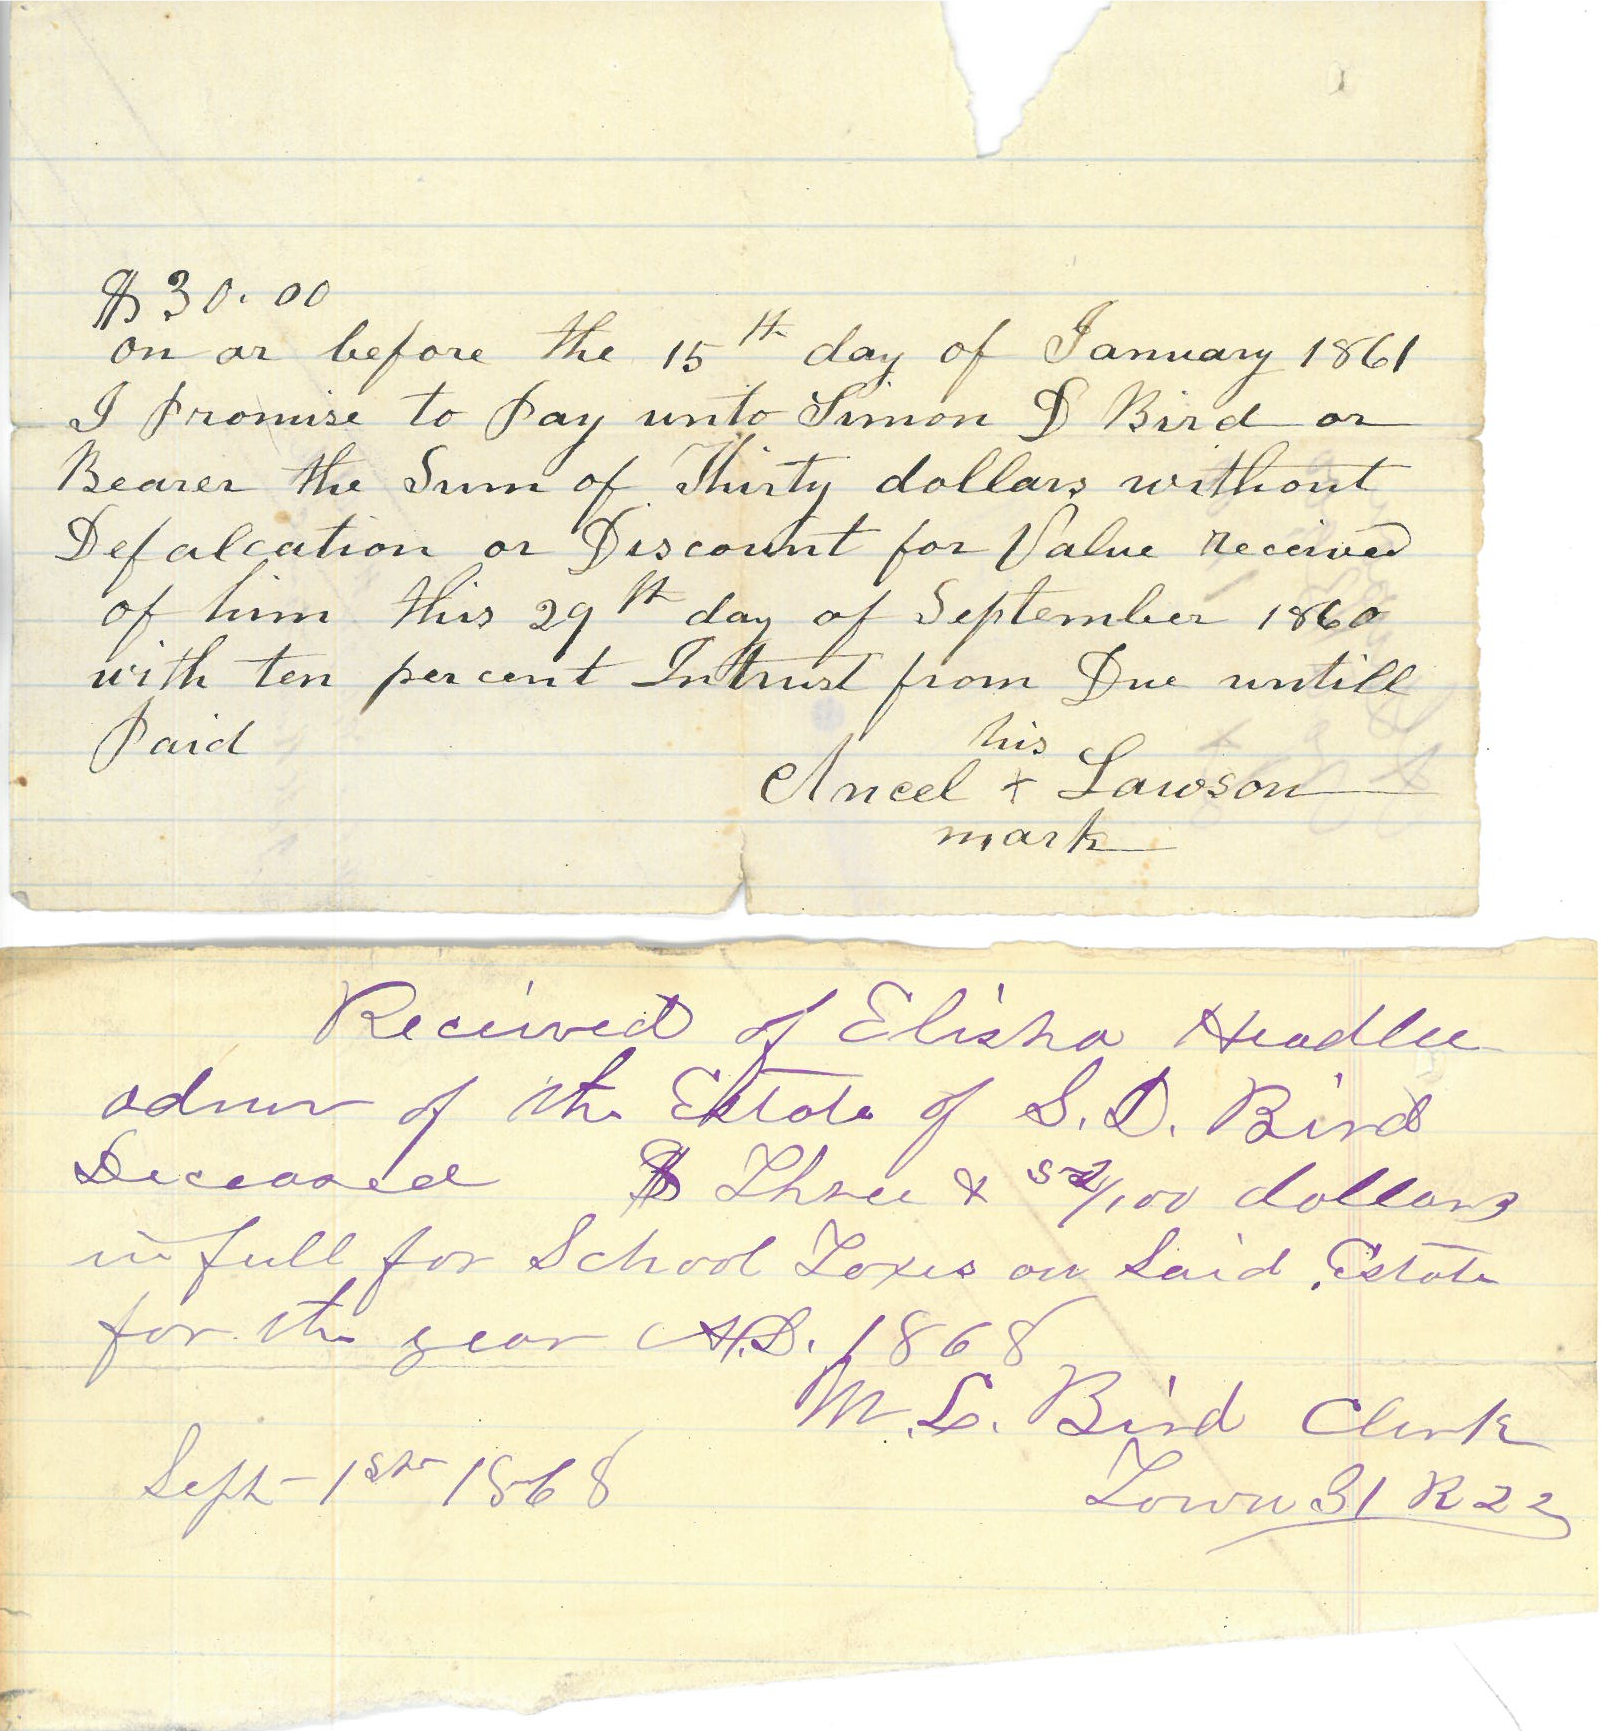 $30.00
on or before the 15th day of January 1861
I Promise to Pay unto Simon D Bird or
Bearer the Sum of Thirty dollars without
Defalcation or Discount for Value Received
of him this 29th day of September 1860
with ten per cent Intrust from Due untill
Paid
his
Ancel + Lawson
mark
Received of Elisha Headlee
admr of the Estate of S. D. Bird
Deceased $ Three & 52/100 dollars
in full for School Taxes on Said Estate
for the year A.D. 1868
M. L. Bird Clerk
Sept 1st 1868
Town 31 R 22